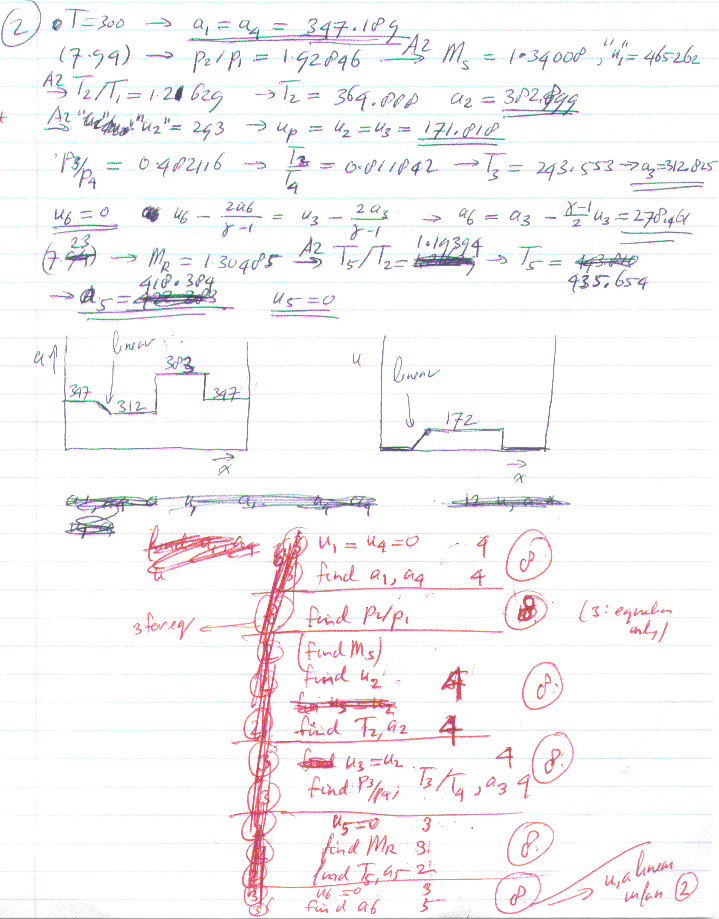 ② • T=300 → a₁ = a₄ = 347.189
(7.94) → P₂/P₁ = 1.92846 A2→ Mₛ = 1.34008, "u₁" = 465262
A2→ T₂/T₁ = 1.21629 → T₂ = 364.888 a₂ = 382.999
A2→ "u₂" = 293 → uₚ = u₂ = u₃ = 171.818
P₃/P₄ = 0.482116 → T₃/T₄ = 0.811842 → T₃ = 243.553 → a₃ = 312.825
u₆ = 0 u₆ - 2a₆/γ-1 = u₃ - 2a₃/γ-1 → a₆ = a₃ - γ-1/2 u₃ = 278.461
(7.23) → M_R = 1.30485 A2→ T₅/T₂ = 1.19394 → T₅ = 435.654
→ a₅ = 418.384 u₅ = 0
a↑ linear 383 u linear
347 312 347 172
→ x → x
u₁ = u₄ = 0 4 ⑧
find a₁, a₄ 4
3 for eq find P₂/P₁ ⑧ (3: equation only)
(find Mₛ)
find u₂ 4 ⑧
find T₂, a₂ 4
u₃ = u₂ 4 ⑧
find P₃/P₄, T₃/T₄, a₃ 4
u₅ = 0 3
find M_R 3 ⑧
find T₅, a₅ 2
u₆ = 0 3 ⑧ u, a linear in fan ②
find a₆ 5